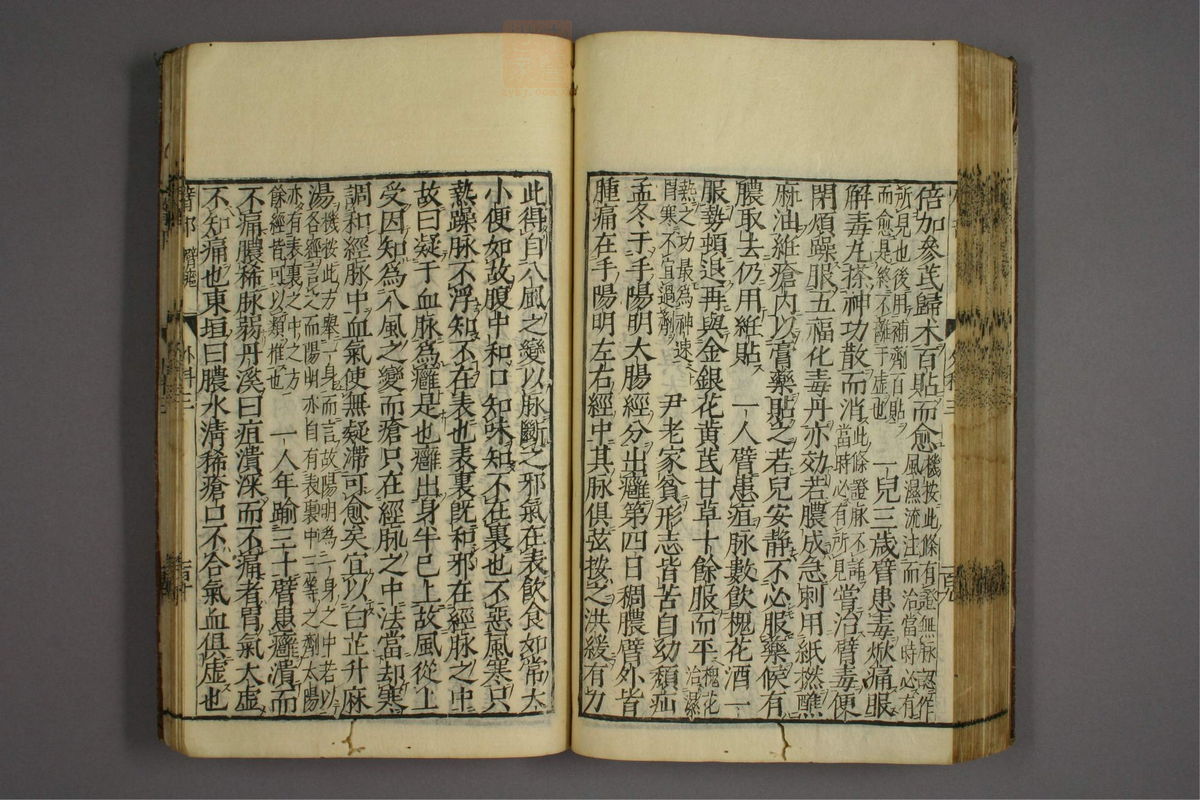 倍加參芪歸术百貼而愈機按此條有證無脉認作
風濕流注而治當時必有
所見也後用補劑百貼
而愈是終不離于虛也一兒三歲臂患毒焮痛服
解毒丸搽神功散而消此條證脉不詳
當時必有所見嘗治臂毒便
閉煩躁服五福化毒丹亦効若膿成急刺用紙撚蘸
麻油紝瘡內以膏藥貼之若兒安靜不必服藥候有
膿取去仍用紝貼 一人臂患疽脉數飲槐花酒一
服勢頓退再與金銀花黃芪甘草十餘服而平槐花
治濕
熱之功最爲神速
胃寒不宜過劑尹老家貧形志皆苦自幼㿗疝
孟冬于手陽明大腸經分出癰第四日稠膿臂外皆
腫痛在手陽明左右經中其脉俱弦按之洪緩有力
此得自八風之變以脉斷之邪氣在表飲食如常大
小便如故腹中和口知味知不在裏也不惡風寒只
熱躁脉不浮知不在表也表裏既和邪在經脉之中
故曰凝于血脉爲癰是也癰出身半已上故風從上
受因知爲八風之變而瘡只在經脉之中法當却寒
調和經脉中血氣使無凝滯可愈矣宜以白芷升麻
湯機按此方舉一身而言故陽明爲一身之中若以
各經言之而陽明亦自有表裏中三等之劑太陽
亦有表裏之中之方
餘經皆可以類推也一人年踰三十臂患癰潰而
不痛膿稀脉弱丹溪曰疽潰深而不痛者胃氣大虛
不知痛也東垣曰膿水清稀瘡口不合氣血俱虛也
臂部 臂癰 外科三